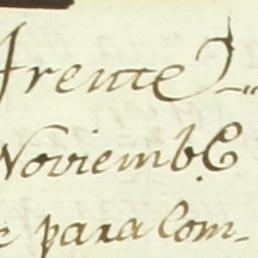 frente
Noviembe
e para Com-